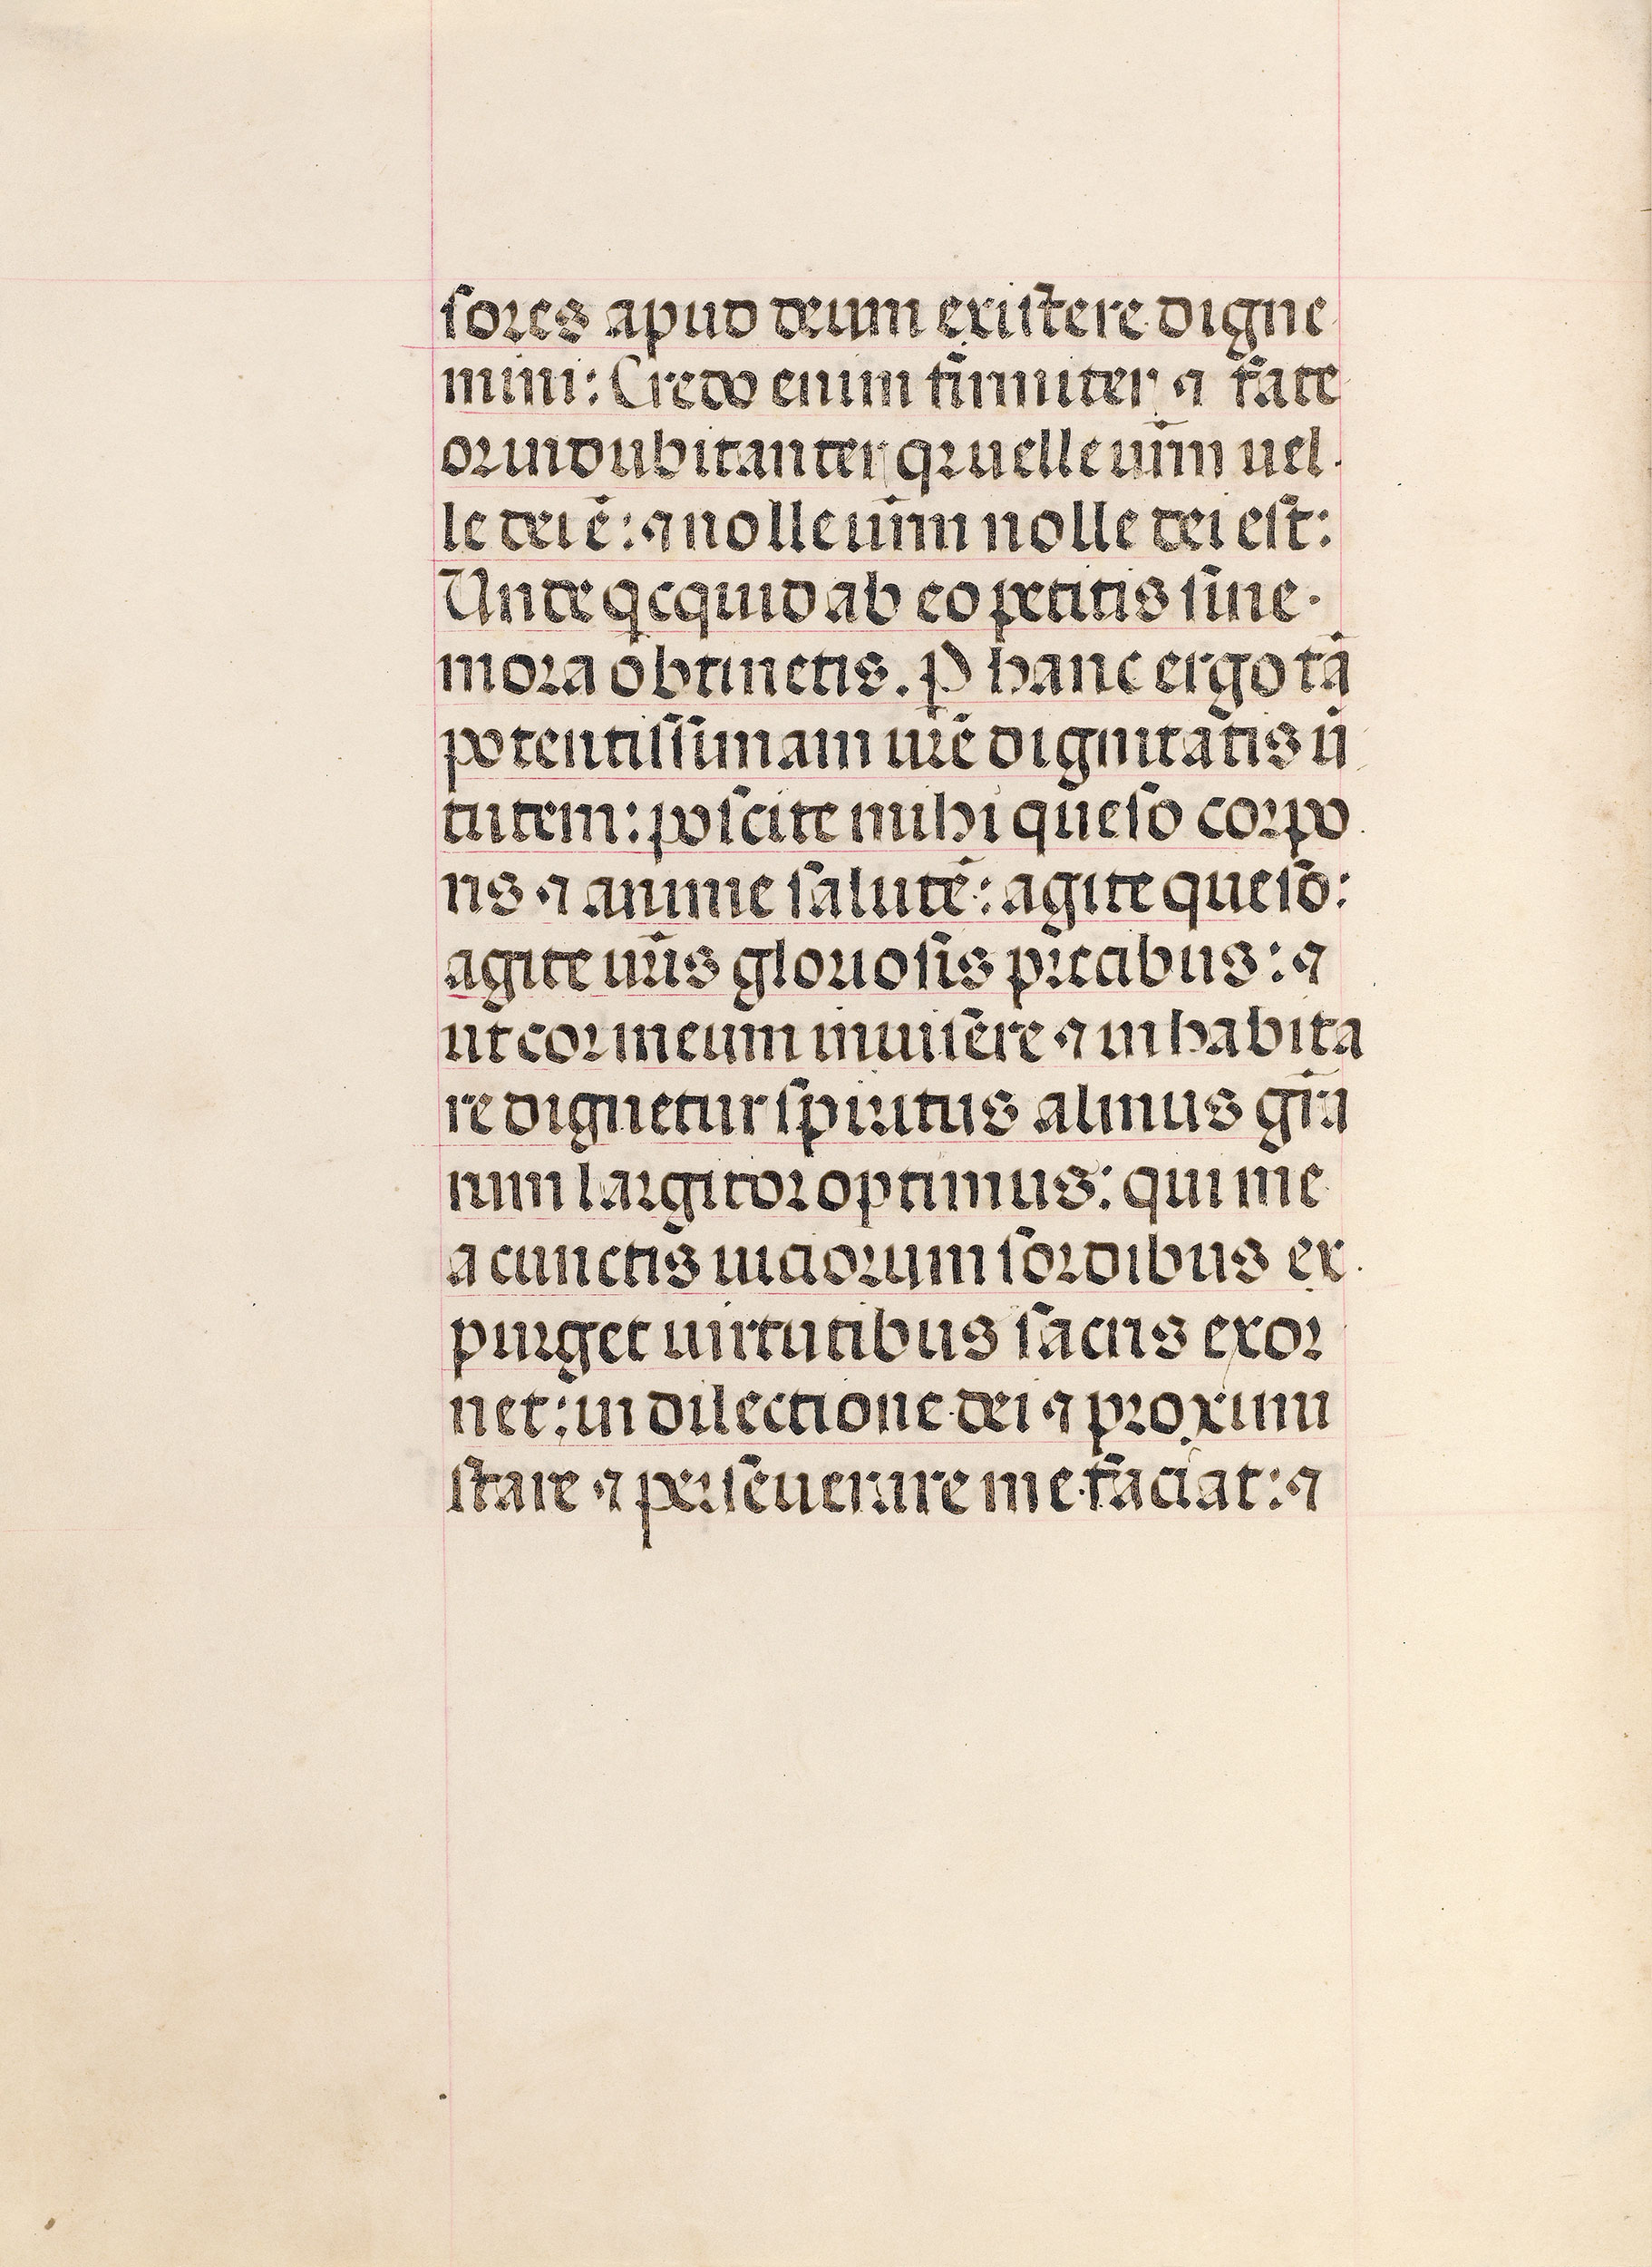 sores apud deum existere digne
mini: Credo enim firmiter ⁊ fate
or indubitanter qr uelle ur̄m uel
le dei ē: ⁊ nolle ur̄m nolle dei est:
Unde qͥcquid ab eo petitis sine
mora obtinetis. P hanc ergo tā
potentissimam ur̄e dignitatis ur̄
tutem: poscite mihi queso corpo
ris ⁊ anime salutē: agite queso:
agite ur̄is gloriosis precibus: ⁊
ut cor meum inuisere ⁊ inhabita
re dignetur spiritus almus gr̄a
rum largitor optimus: qui me
a cunctis uiciorum sordibus ex
purget uirtutibus sacris exor
net: in dilectione dei ⁊ proximi
stare ⁊ perseuerare me faciat: ⁊